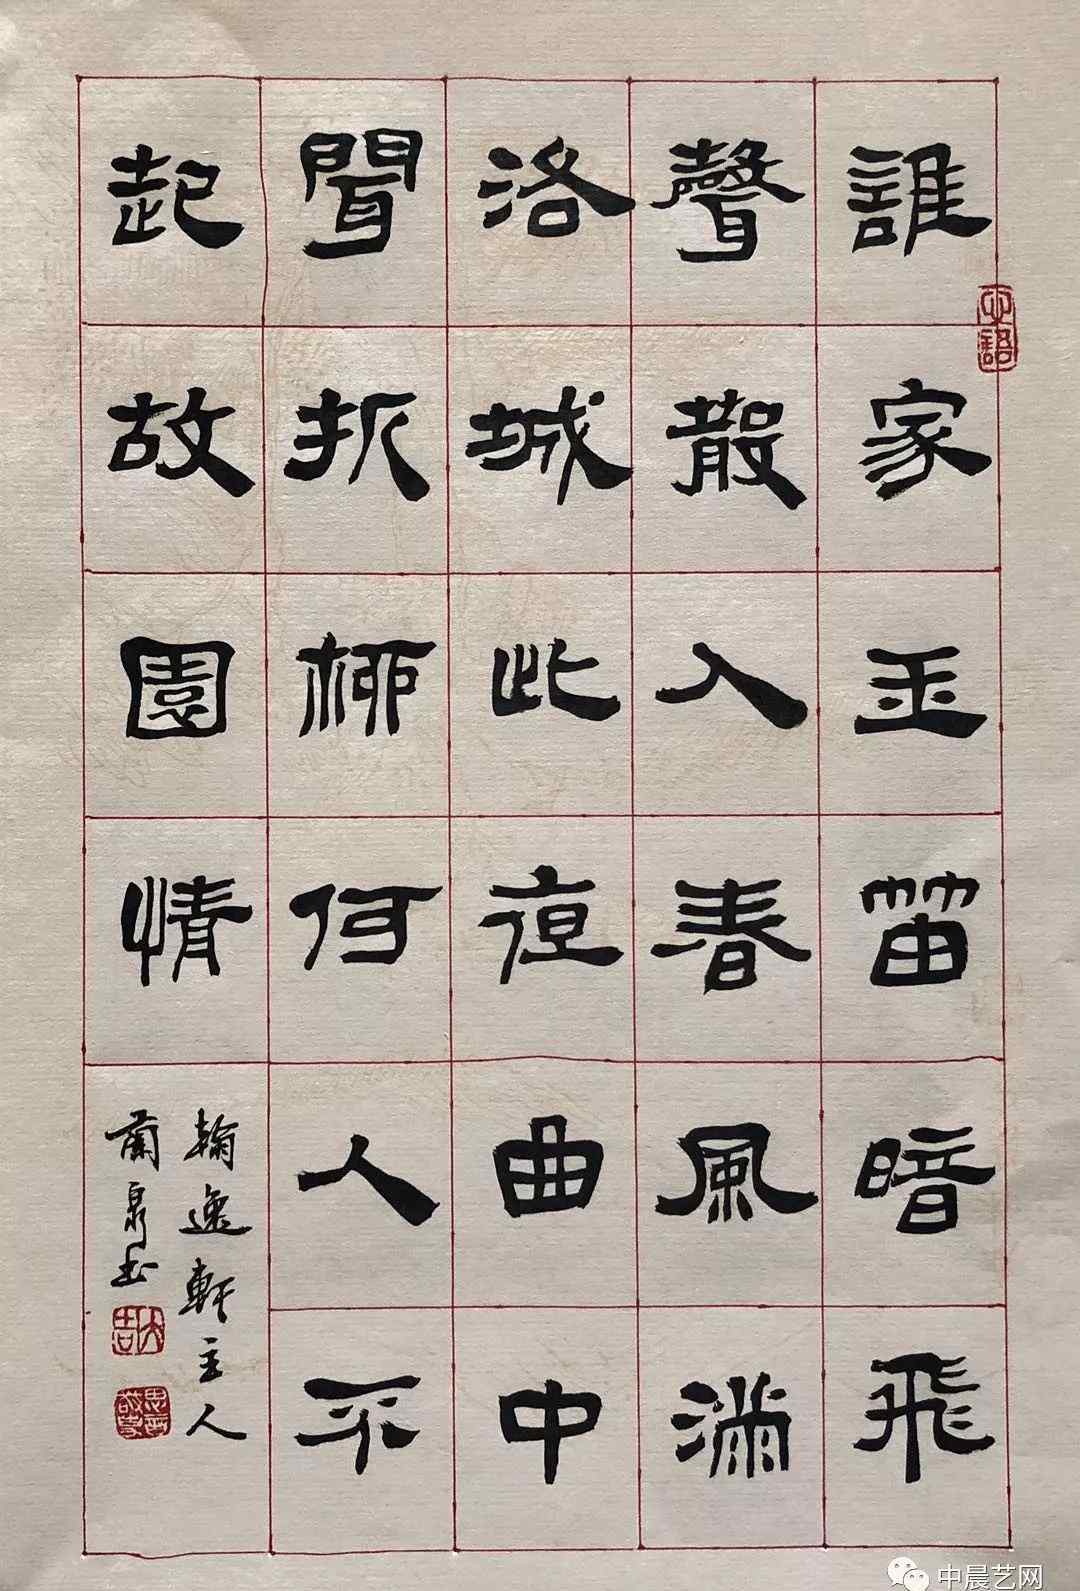 誰家玉笛暗飛
聲散入春風滿
洛城此夜曲中
聞折柳何人不
起故園情
翰逸軒主人
蘭泉书
中晨艺网